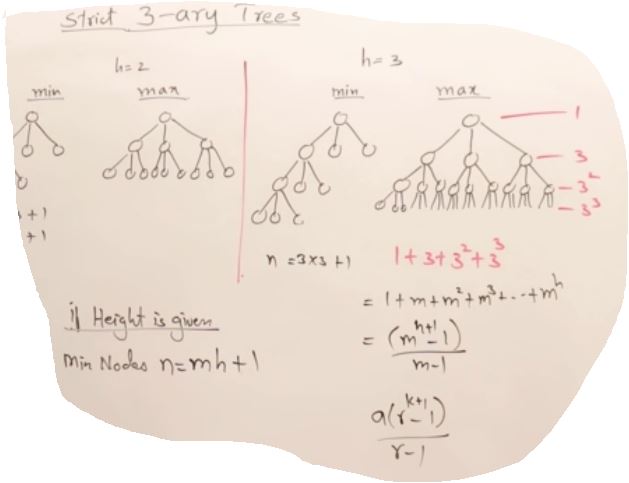 Strict 3-ary Trees
h=2
min max
+1
+1
h=3
min max
1
3
3²
3³
n =3×3 +1
1+3+3²+3³
= 1+m+m²+m³+...+m^h
= (m^(h+1)-1)
m-1
a(r^(k+1)-1)
r-1
if Height is given
Min Nodes n=mh+1